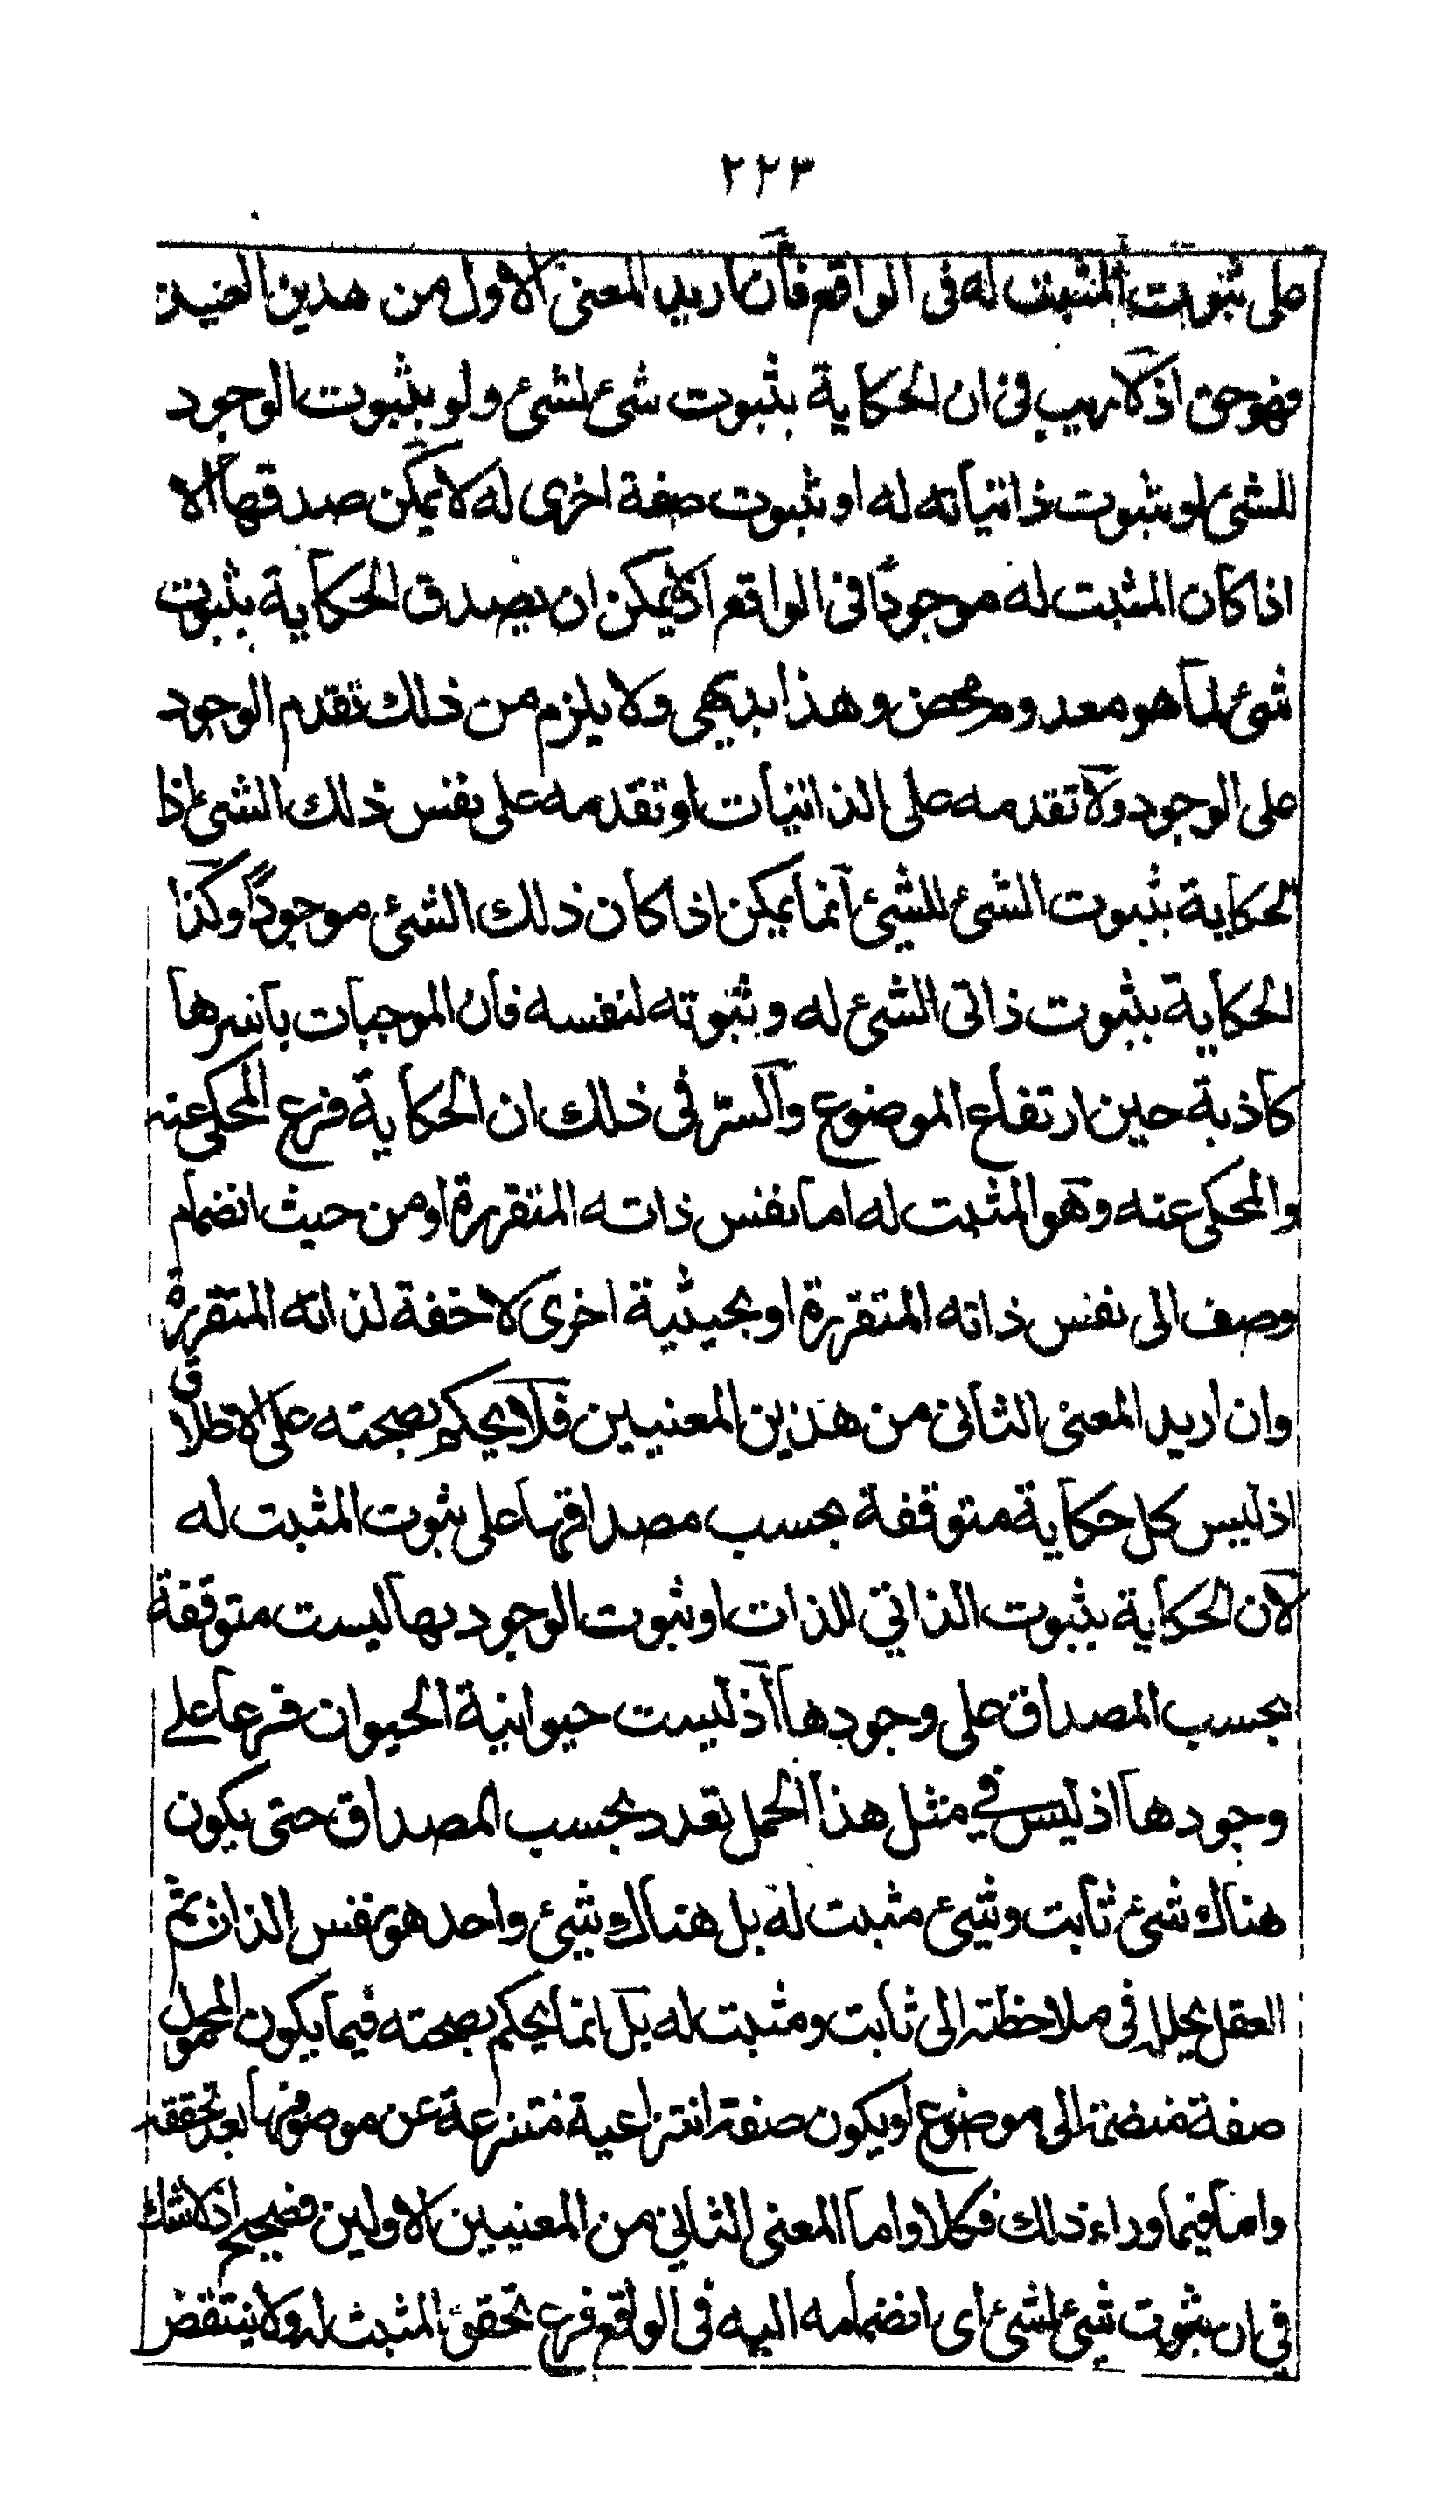 ٢٢٣
على ثبوت المثبت له فى الواقع فان اريد المعنى الاول من هذين المعنيين
فهو حق اذ لا ريب فى ان الحكاية بثبوت شئ لشئ ولو بثبوت الوجود
للشئ او بثبوت ذاتياته له او بثبوت صفة اخرى له لا يمكن صدقها الا
اذا كان المثبت له موجودًا فى الواقع اذ لا يمكن ان يصدق الحكاية بثبوت
شئ لما هو معدوم محض وهذا بديهى ولا يلزم من ذلك تقدم الوجود
على الوجود ولا تقدمه على الذاتيات او تقدمه على نفس ذلك الشئ اذا
لحكاية بثبوت الشئ للشئ انما يمكن اذا كان ذلك الشئ موجودًا وكذا
الحكاية بثبوت ذاتى الشئ له وبثبوته لنفسه فان الموجبات باسرها
كاذبة حين ارتفاع الموضوع والسرّ فى ذلك ان الحكاية فرع المحكى عنه
والمحكى عنه وهو المثبت له اما نفس ذاته المتقررة او من حيث انضمام
وصف الى نفس ذاته المتقررة او بحيثية اخرى لاحقة لذاته المتقررة
وان اريد المعنى الثانى من هذين المعنيين فلا يحكم بصحته على الاطلاق
اذ ليس كل حكاية متوقفة بحسب مصداقها على ثبوت المثبت له
لان الحكاية بثبوت الذاتي للذات او ثبوت الوجود بها ليست متوقفة
بحسب المصداق على وجودها اذ ليست حيوانية الحيوان فرعا على
وجودها اذ ليس في مثل هذا الحمل تعدد بحسب المصداق حتى يكون
هناك شئ ثابت وشئ مثبت له بل هناك شئ واحد هو نفس الذات ثم
العقل يحلله فى ملاحظته الى ثابت ومثبت له بل انما يحكم بصحته فيما يكون المحمول
صفة منضمة الى موضوع او يكون صفة انتزاعية منتزعة عن موصوفها بعد تحققه
واما فيما وراء ذلك فكلا واما المعنى الثانى من المعنيين الاولين فصحيح اذ لا شك
فى ان ثبوت شئ لشئ اى انضمامه اليه فى الواقع فرع تحقق المثبت له ولا ينتقض